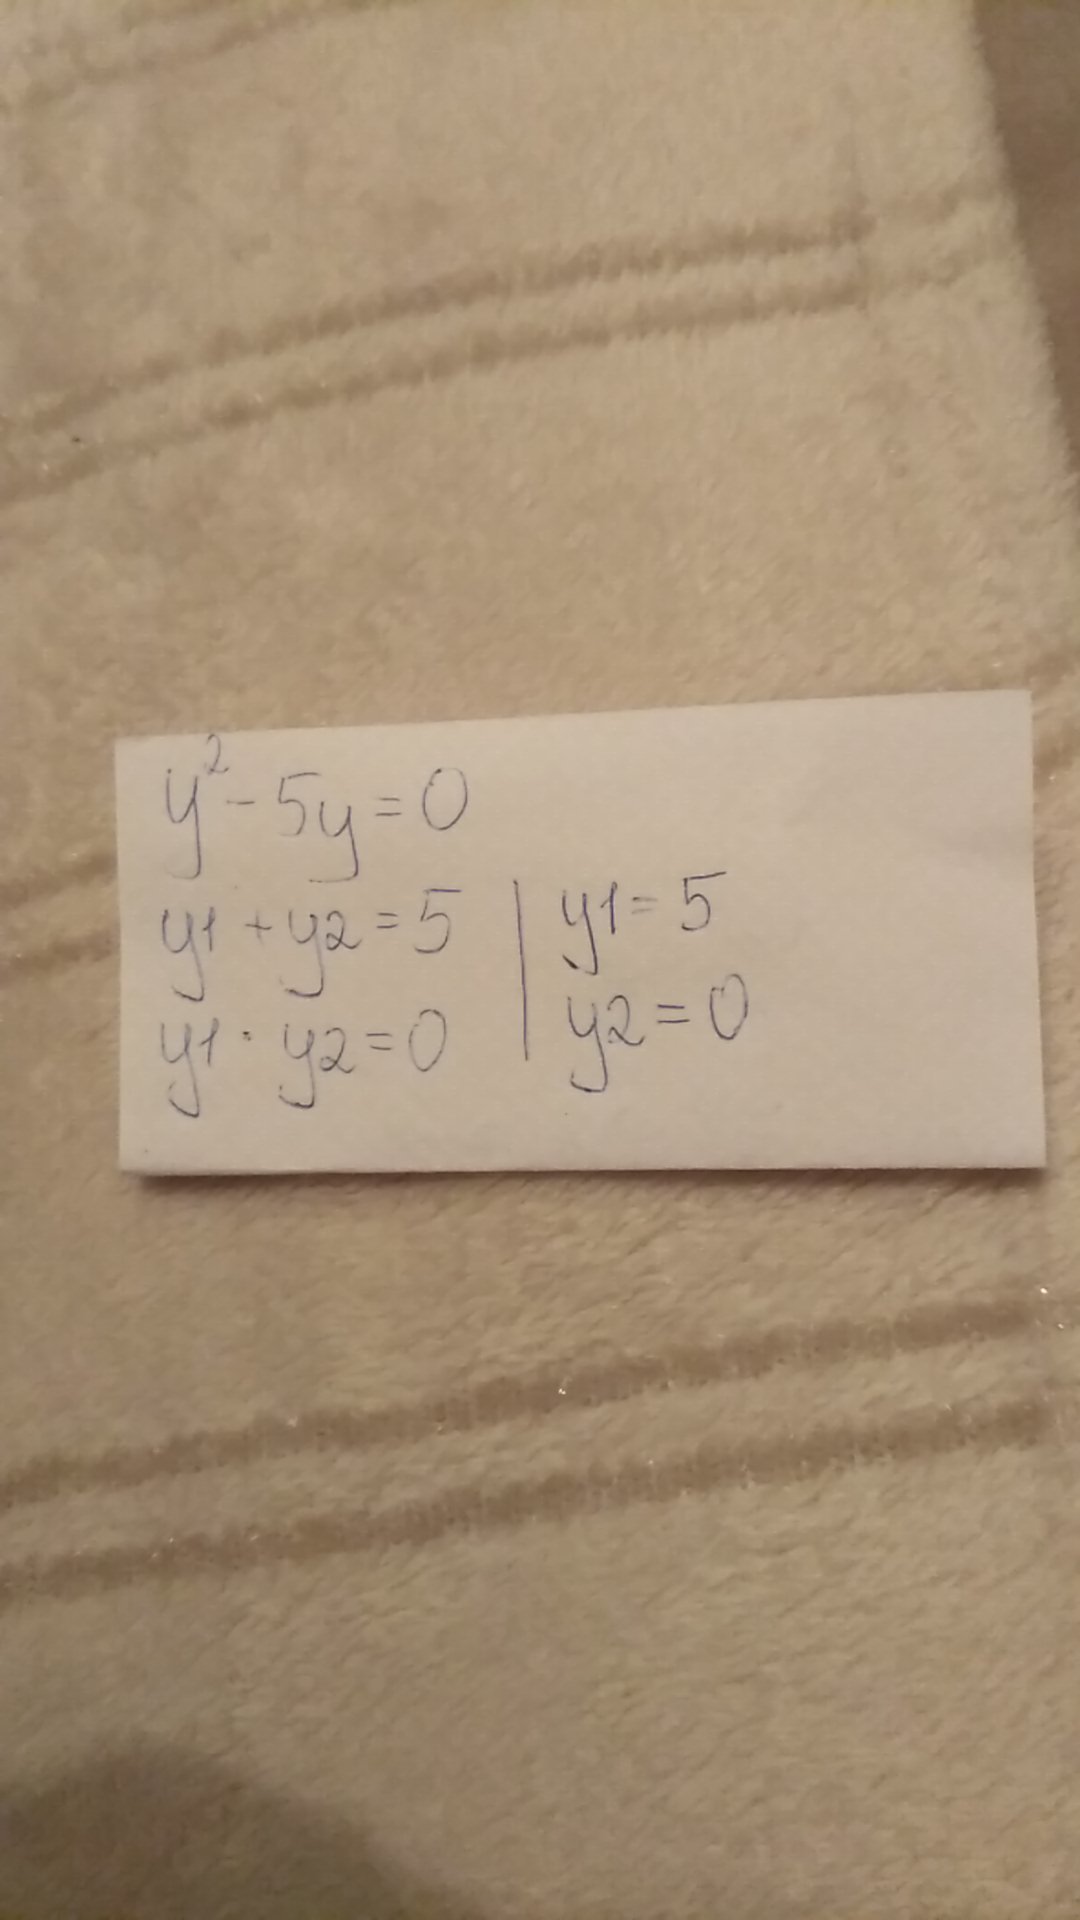 y² - 5y = 0
y1 + y2 = 5 | y1 = 5
y1 · y2 = 0 | y2 = 0